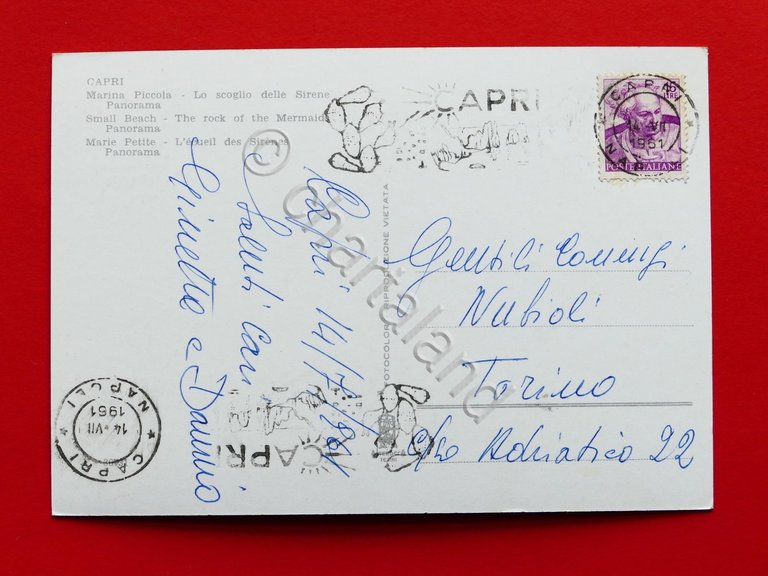 CAPRI
Marina Piccola - Lo scoglio delle Sirene
Panorama
Small Beach - The rock of the Mermaid
Panorama
Marie Petite - L'écueil des Sirènes
Panorama
CAPRI
15
LIRE
CAPRI
14 • VII
1961
NAPOLI
POSTE ITALIANE
Capri 14/7/961
Saluti cari
Ginetta e Danilo
FOTOCOLOR RIPRODUZIONE VIETATA
Gentili Coniugi
Nubioli
Torino
C/so Adriatico 22
CAPRI
CAPRI
14 • VII
1961
NAPOLI
© chartaland